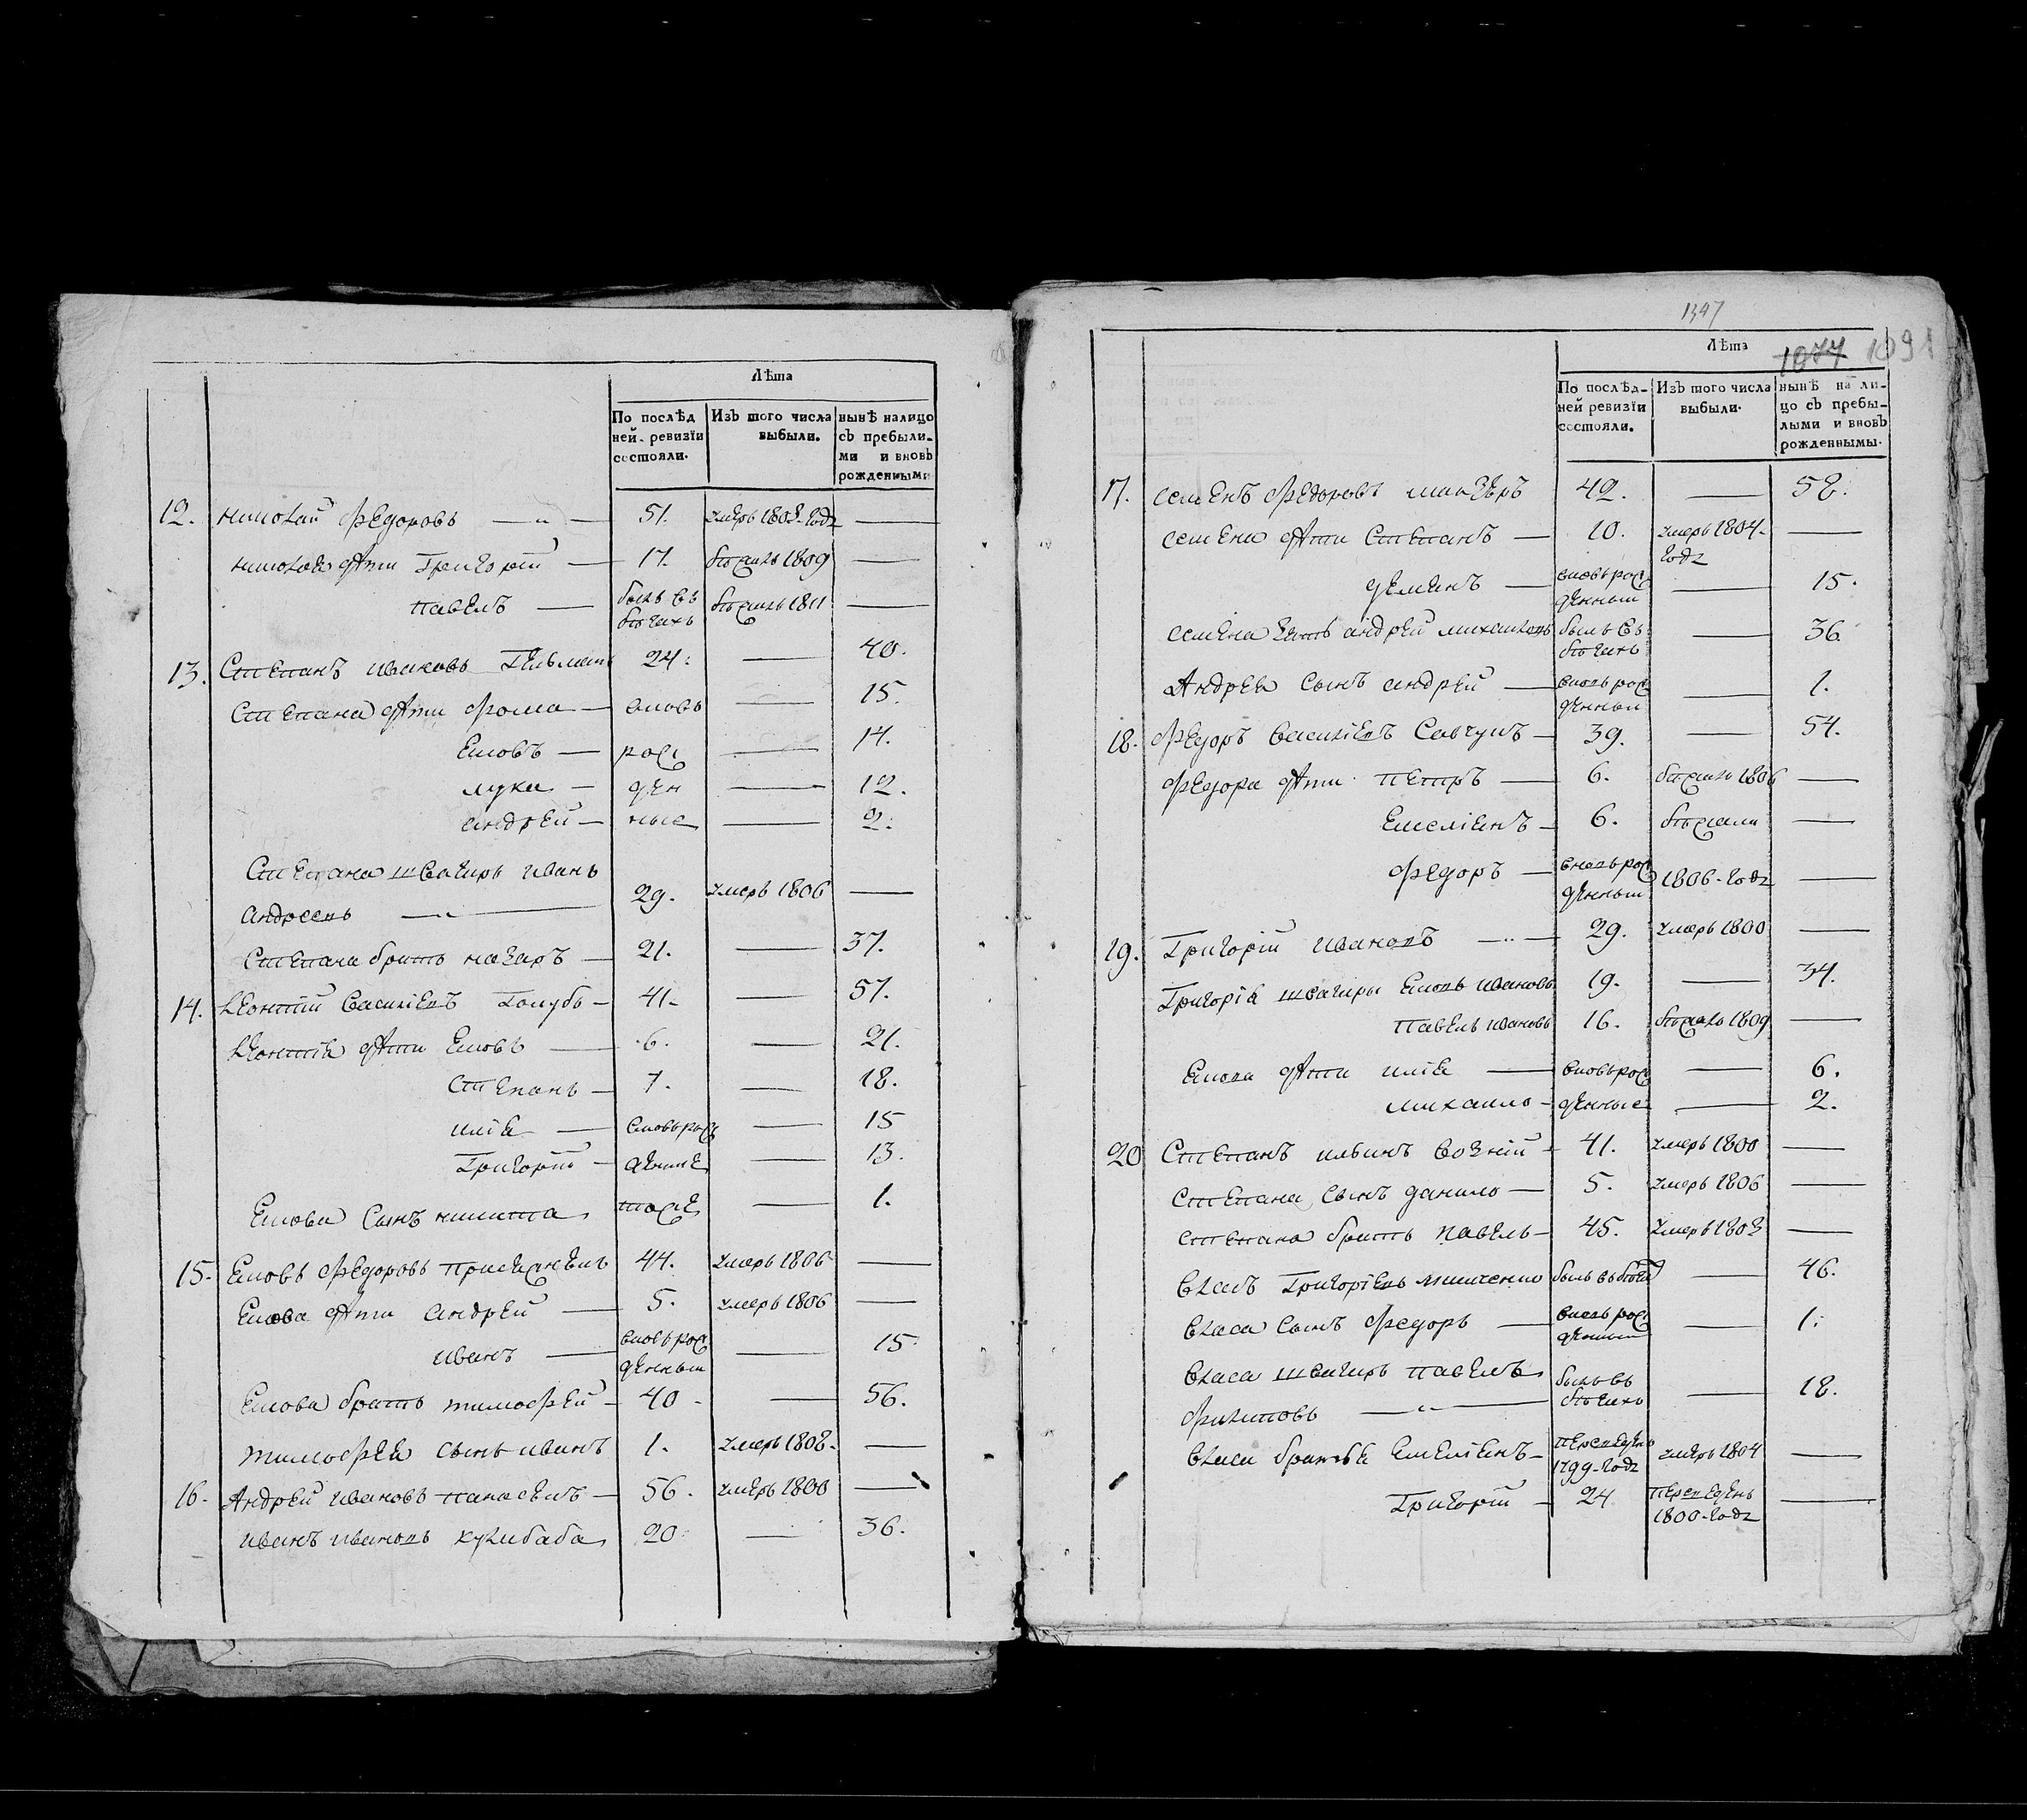 Лѣта
По послѣд Изъ того числа нынѣ налицо
ней ревизїи выбыли. съ пребыли-
состояли. ми и вновь
рожденными
12. николай Федоровъ — 51. умеръ 1803 года —
николая дѣти Григорій — 17. бѣжалъ 1809 —
павелъ — былъ въ бѣгахъ бѣжалъ 1811 —
13. Степанъ ивановъ 24. — 40.
Степана дѣти фома — вновь — 15.
— рож — 14.
лука — ден — 12.
андрей — ные — 2.
Степана швагиръ иванъ
андреевъ — 29. умеръ 1806 —
Степана братъ назаръ — 21. — 37.
14. Леонтій василіевъ Голубь — 41. — 57.
Леонтія дѣти — 6. — 21.
Степанъ — 7. — 18.
иліа — вновь рож — 15
Григорій — денные — 13.
сынъ никита тоже — 1.
15. Федоровъ 44. умеръ 1806 —
дѣти андрей — 5. умеръ 1806 —
иванъ — вновь рожденный — 15.
братъ тимофей — 40 — 56.
тимофея сынъ иванъ 1. умеръ 1808 —
16. Андрей ивановъ панасенко — 56. умеръ 1800 —
иванъ ивановъ кулибаба 20 — 36.
1347
Лѣта 1077 1091
По послѣд- Изъ того числа нынѣ на ли-
ней ревизїи выбыли. цо съ пребы-
состояли. лыми и вновь
рожденнымы.
17. семенъ Федоровъ 42. — 58.
семена дѣти Степанъ — 10. умеръ 1804 года —
деменъ — вновь рожденный — 15.
семена зять андрей михаиловъ былъ въ бѣгахъ — 36
Андрея сынъ андрей — вновь рожденный — 1.
18. Федоръ василіевъ Савчунъ — 39. — 54.
Федора дѣти петръ — 6. бѣжалъ 1806 —
емеліанъ — 6. бѣжали —
Федоръ — вновь рожденный 1806 года —
19. Григорій ивановъ — 29. умеръ 1800 —
Григорія швагиры ивановъ 19. — 34.
павелъ ивановъ 16. бѣжалъ 1809 —
дѣти иліа — вновь рож — 6.
михаило — денные — 2.
20 Степанъ ильинъ возній — 41. умеръ 1800 —
Степана сынъ данило — 5. умеръ 1806 —
степана братъ павелъ — 45. умеръ 1803 —
власъ Григоріевъ былъ въ бѣгах — 46.
власа сынъ федоръ — вновь рожденный — 1.
власа швагиръ павелъ
филиповъ — былъ въ бѣгахъ — 18.
власа братья емеліанъ — переведенъ 1799 года умеръ 1804 —
Григорій — 24 переведенъ 1800 года —